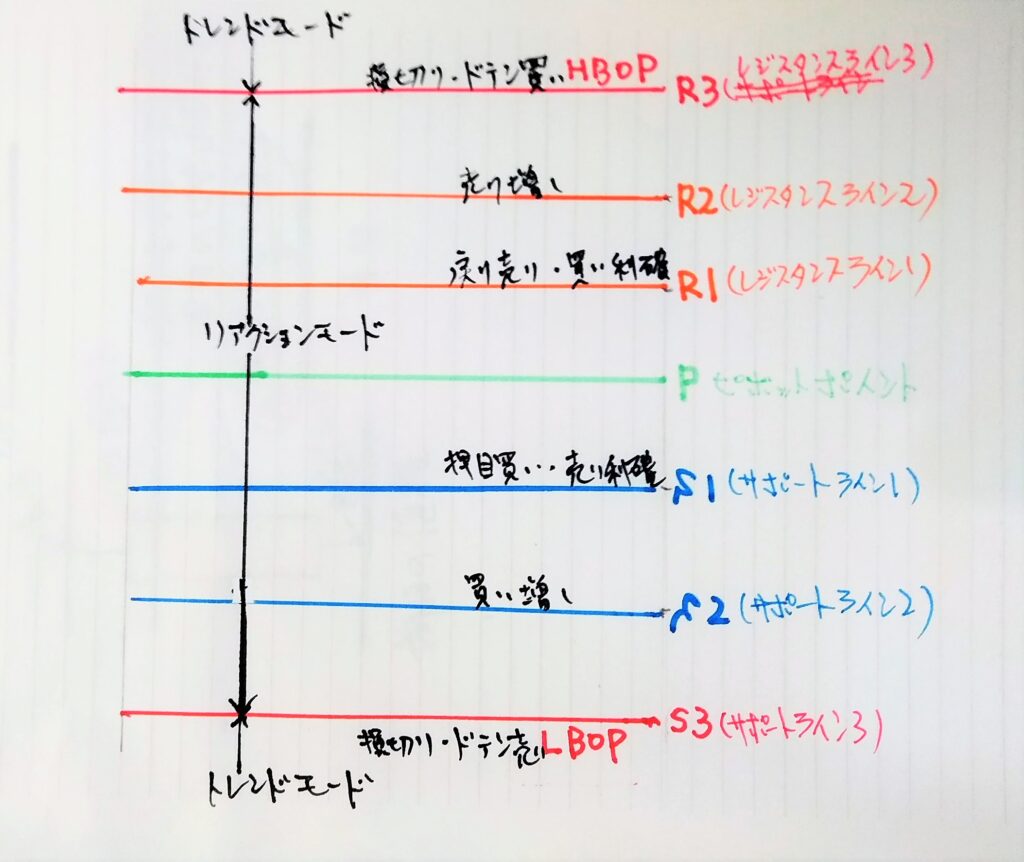 トレンドモード
損切り・ドテン買い HBOP R3(レジスタンスライン3)
サポートライン
売り増し R2(レジスタンスライン2)
戻り売り・買い利確 R1(レジスタンスライン1)
リアクションモード
P ピボットポイント
押目買い・売り利確 S1(サポートライン1)
買い増し S2(サポートライン2)
S3(サポートライン3)
損切り・ドテン売り LBOP
トレンドモード